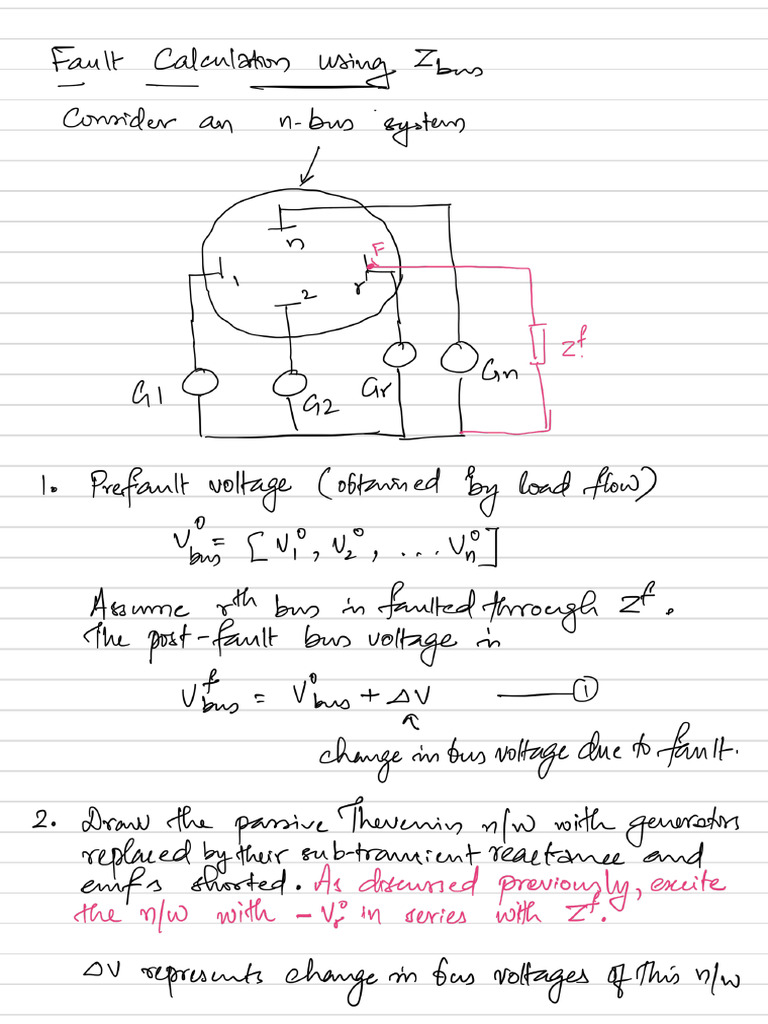 Fault Calculation using Zbus
Consider an n-bus system
n
F
1
2
r
Z^f
G1
G2
Gr
Gn
1. Prefault voltage (obtained by load flow)
V^0_bus = [V_1^0, V_2^0, ... V_n^0]
Assume r^th bus is faulted through Z^f.
The post-fault bus voltage is
V^f_bus = V^0_bus + ΔV —— ①
change in bus voltage due to fault.
2. Draw the passive Thevenin n/w with generators
replaced by their sub-transient reactance and
emfs shorted. As discussed previously, excite
the n/w with -V_r^0 in series with Z^f.
ΔV represents change in bus voltages of this n/w